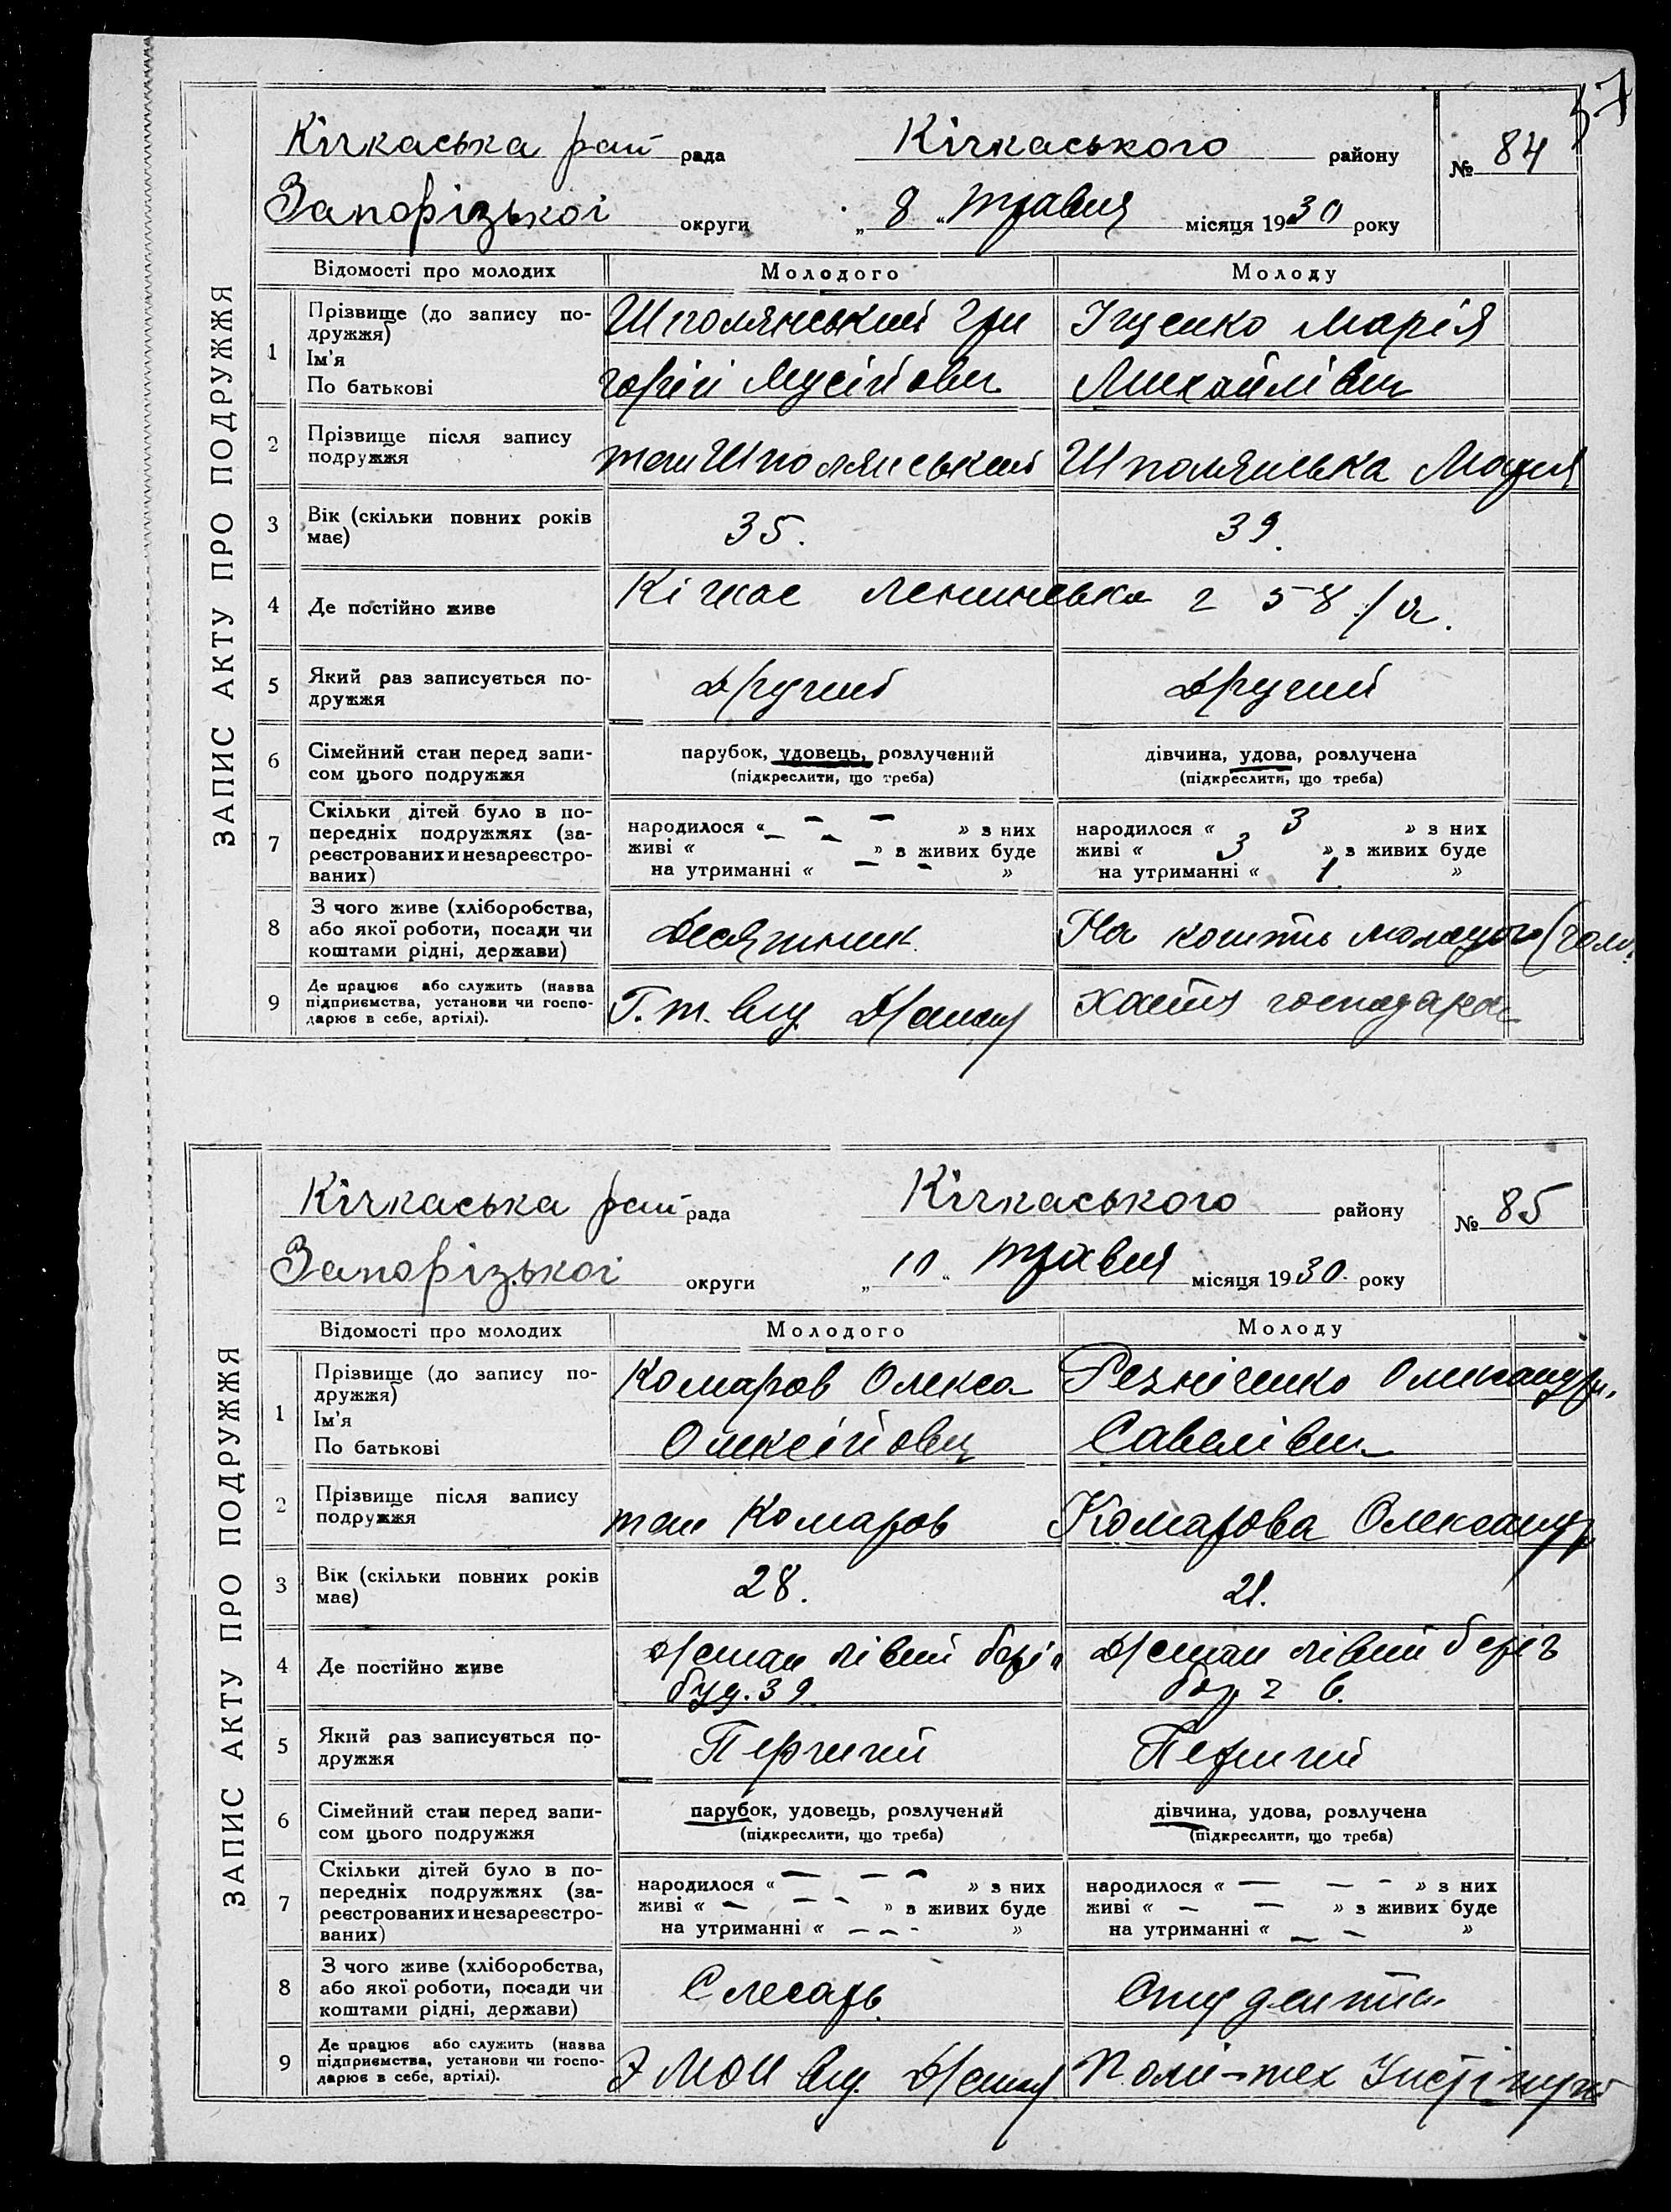 57
ЗАПИС АКТУ ПРО ПОДРУЖЖЯ
Кічкаська рай рада Кічкаського району № 84
Запорізької округи „ 8 “ травня місяця 1930 року
Відомості про молодих Молодого Молоду
1 Прізвище (до запису по-
дружжя)
Ім'я
По батькові
Шполянський Гри
горій Мусійович
Іщенко Марія
Михайлівн
2 Прізвище після запису
подружжя
теж Шполянський Шполянська Мария
3 Вік (скільки повних років
має)
35. 39.
4 Де постійно живе Кічкас Ленинська 2 58/
5 Який раз записується по-
дружжя
Другий Другий
6 Сімейний стан перед запи-
сом цього подружжя
парубок, удовець, розлучений
(підкреслити, що треба)
дівчина, удова, розлучена
(підкреслити, що треба)
7 Скільки дітей було в по-
передніх подружжях (за-
реєстрованих и незареєстро-
ваних)
народилося « — — » з них
живі « — — » з живих буде
на утриманні « — — »
народилося « 3 » з них
живі « 3 » з живих буде
на утриманні « 1 »
8 З чого живе (хліборобства,
або якої роботи, посади чи
коштами рідні, держави)
Десятник На кошти молодого
9 Де працює або служить (назва
підприємства, установи чи госпо-
дарює в себе, артілі).
Г. т. від. хатня господарка
ЗАПИС АКТУ ПРО ПОДРУЖЖЯ
Кічкаська рай рада Кічкаського району № 85
Запорізької округи „ 10 “ травня місяця 1930. року
Відомості про молодих Молодого Молоду
1 Прізвище (до запису по-
дружжя)
Ім'я
По батькові
Комаров Олекса
Олексійович
Резніченко Олександр.
Савелівн
2 Прізвище після запису
подружжя
теж Комаров Комарова Олександр
3 Вік (скільки повних років
має)
28. 21.
4 Де постійно живе
лівий беріг
буд. 39
лівий беріг
2 6.
5 Який раз записується по-
дружжя
Перший Перший
6 Сімейний стан перед запи-
сом цього подружжя
парубок, удовець, розлучений
(підкреслити, що треба)
дівчина, удова, розлучена
(підкреслити, що треба)
7 Скільки дітей було в по-
передніх подружжях (за-
реєстрованих и незареєстро-
ваних)
народилося « — — — » з них
живі « — — — » з живих буде
на утриманні « — — - »
народилося « — — - » з них
живі « — — » з живих буде
на утриманні « — — »
8 З чого живе (хліборобства,
або якої роботи, посади чи
коштами рідні, держави)
Слесарь Студентка
9 Де працює або служить (назва
підприємства, установи чи госпо-
дарює в себе, артілі).
від. Полі-тех Інстітут